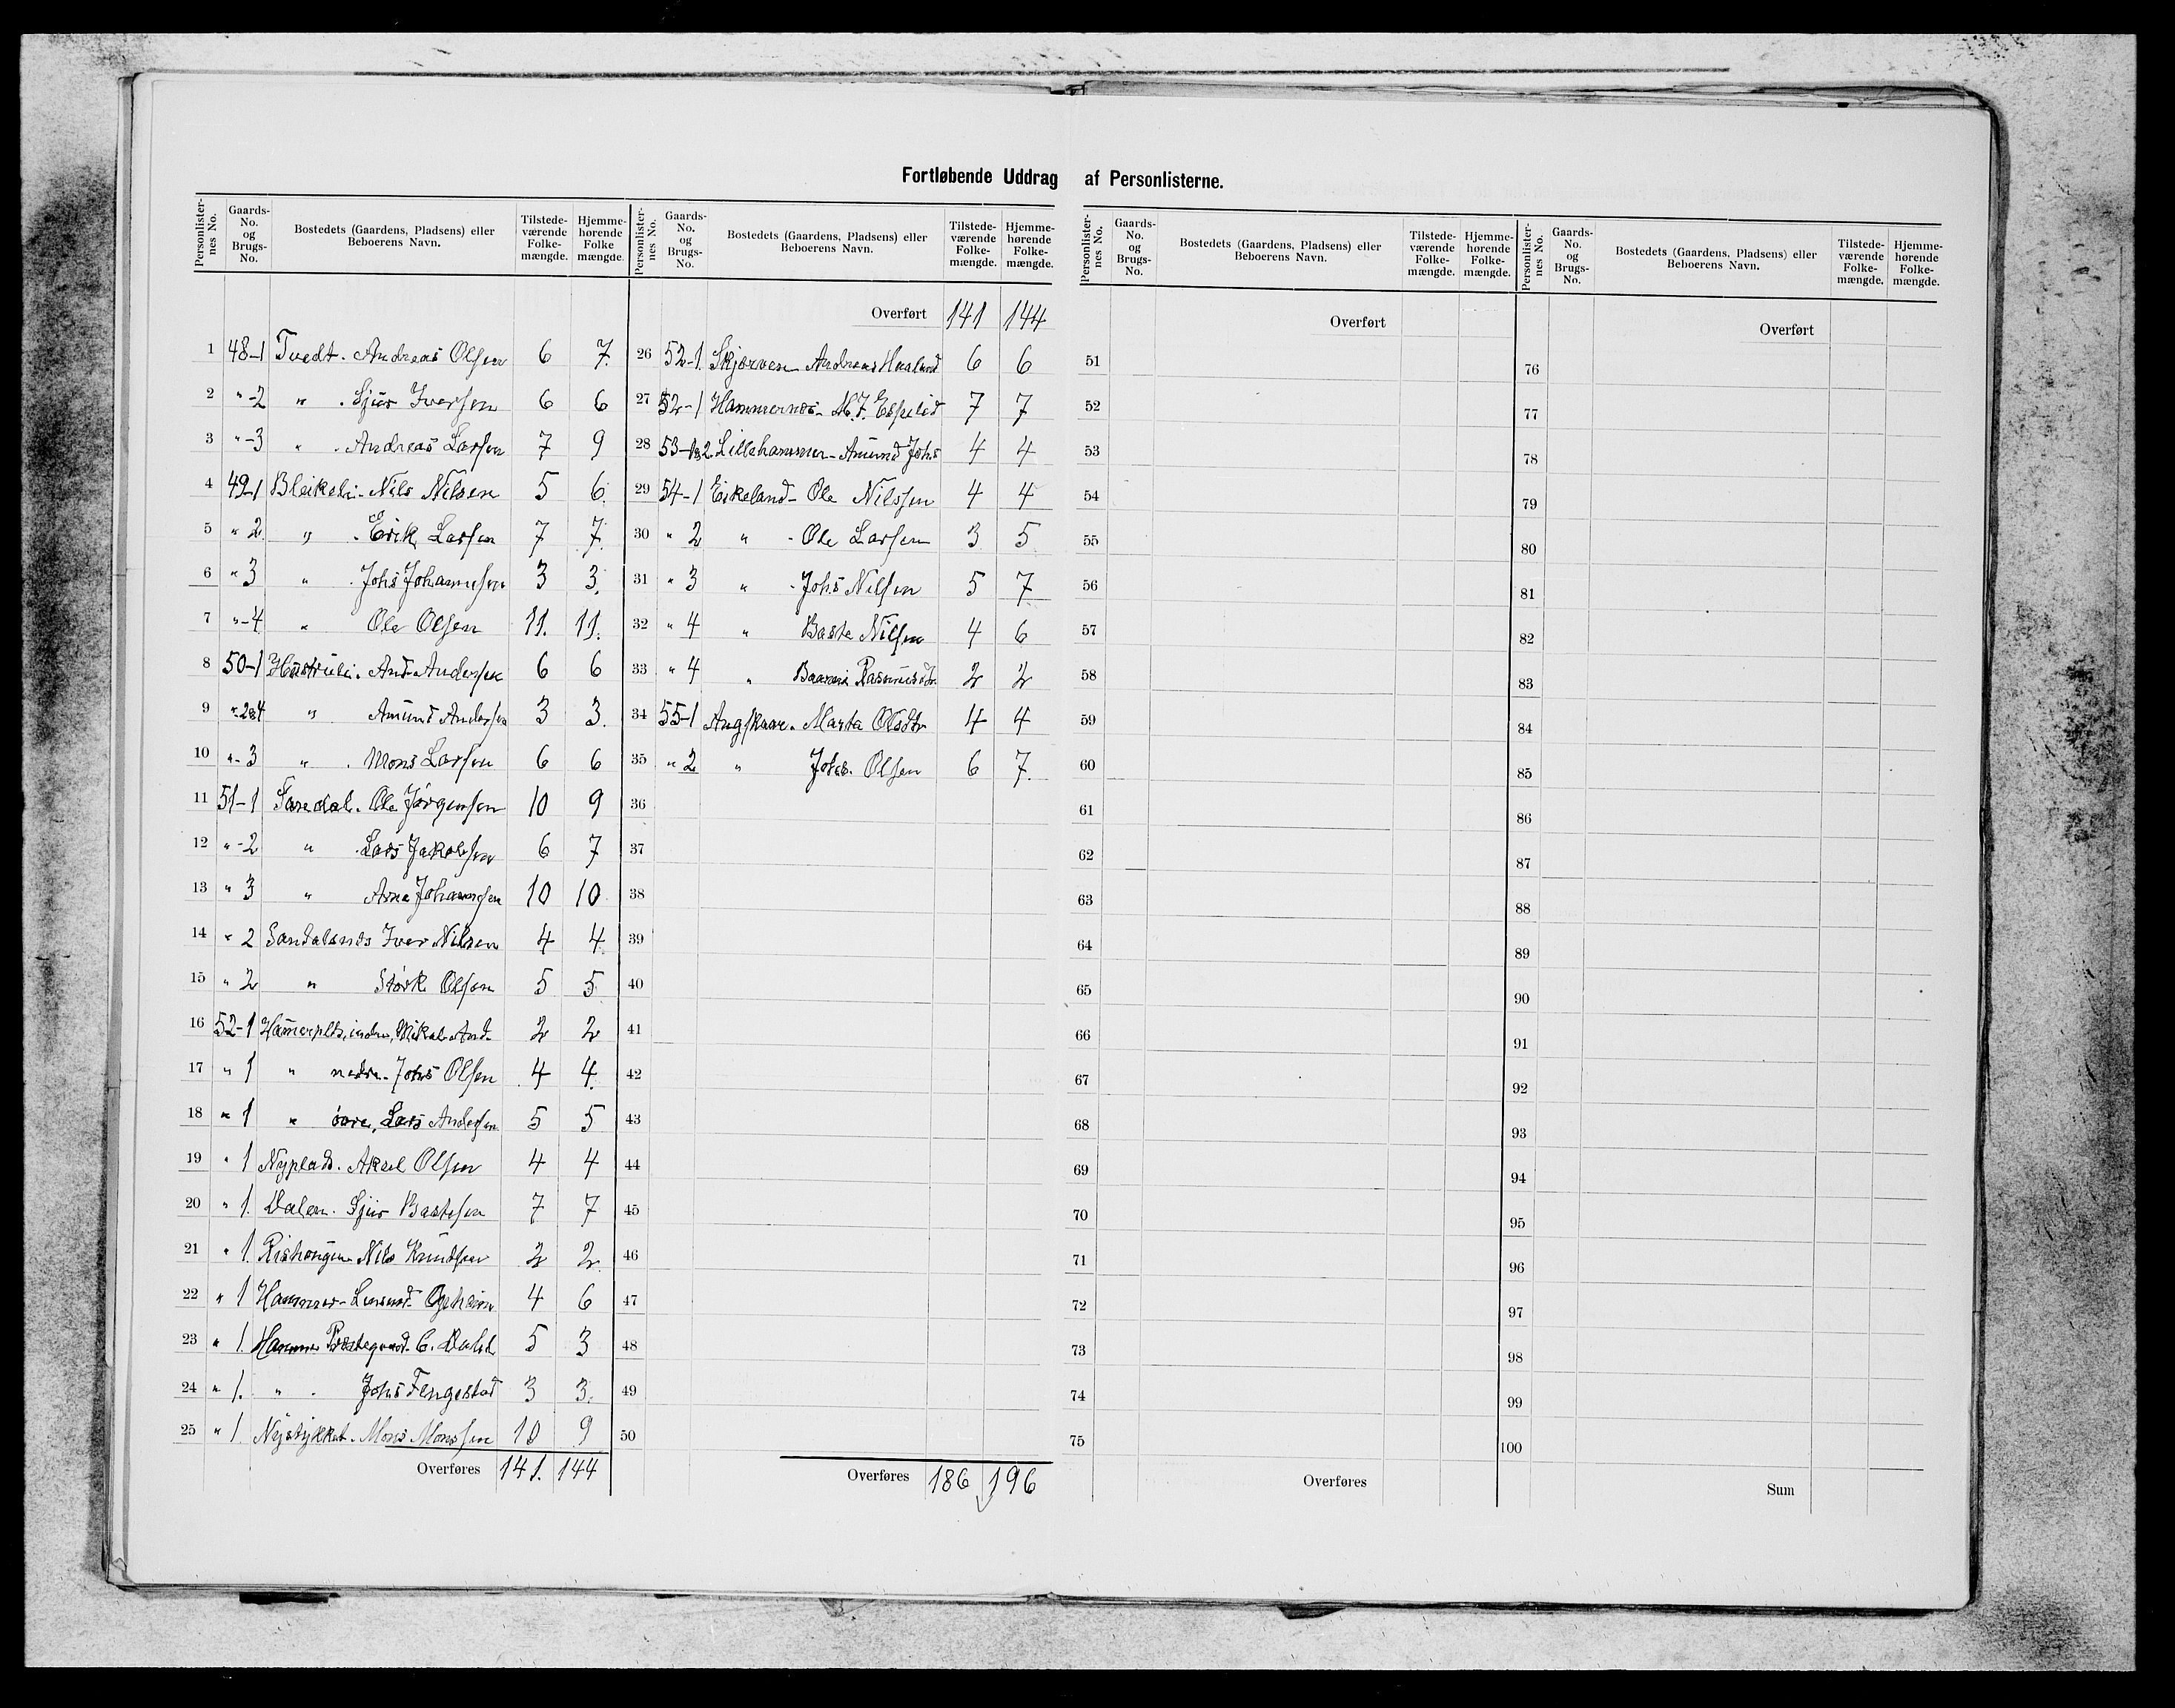 Fortløbende Uddrag af Personlisterne.
Personlisternes No. | Gaards-No. og Brugs-No. | Bostedets (Gaardens, Pladsens) eller Beboerens Navn. | Tilstedeværende Folkemængde. | Hjemmehørende Folkemængde.
1 48-1 Tvedt. Andreas Olsen 6 7.
2 " -2 " . Sjur Iversen 6 6
3 " -3 " . Andreas Larsen 7 9
4 49-1 Bleikeli. Nils Nilsen 5 6.
5 " 2 " . Erik Larsen 7 7.
6 " 3 " . Johs Johannesen 3 3.
7 " -4 " Ole Olsen 11. 11.
8 50-1 And. Andersen 6 6
9 " -2&4 " Amund Andersen 3 3.
10 " - 3 " . Mons Larsen 6 6
11 51-1 Ole Jørgensen 10 9
12 " -2 " . Lars Jakobsen 6 7
13 " 3 " Arne Johannesen 10 10
14 " 2 Iver Nilsen 4 4.
15 " 2 " Størk Olsen 5 5
16 52-1 Hamerplds, indre, Mikal And. 2 2
17 " 1 " nedre. Johs Olsen 4 4.
18 " 1 " øvre, Lars Andersen 5 5
19 " 1 Nyplads. Aksel Olsen 4 4
20 " 1. Dalen. Sjur Bastesen 7 7
21 " 1. Rishaugen Nils Knudsen 2 2.
22 " 1 Hammer- Lensmd. 4 6
23 " 1. Hammer Præstegaard. C. Dahl 5 3
24 " 1. " . Johs Tengestad 3 3.
25 " 1. Nystykket. Mons Monssen 10 9
Overføres 141. 144
Overført 141 144
26 52-1. Skjerven Andreas Haaland 6 6
27 52-1 Hammernes- Espelid 7 7
28 53-1&2 Lillehammer- Amund Johs 4 4
29 54-1 Eikeland- Ole Nilssen 4 4
30 " 2 " - Ole Larsen 3 5
31 " 3 " . Johs Nilsen 5 7
32 " 4 " Baste Nilsen 4 6
33 " 4 " Rasmusdtr 2 2
34 55-1 Angskaar. Marta Olsdtr 4 4
35 " 2 " Johs. Olsen 6 7.
36
37
38
39
40
41
42
43
44
45
46
47
48
49
50
Overføres 186 196
Personlisternes No. | Gaards-No. og Brugs-No. | Bostedets (Gaardens, Pladsens) eller Beboerens Navn. | Tilstedeværende Folkemængde. | Hjemmehørende Folkemængde.
Overført
51
52
53
54
55
56
57
58
59
60
61
62
63
64
65
66
67
68
69
70
71
72
73
74
75
Overføres
Overført
76
77
78
79
80
81
82
83
84
85
86
87
88
89
90
91
92
93
94
95
96
97
98
99
100
Sum